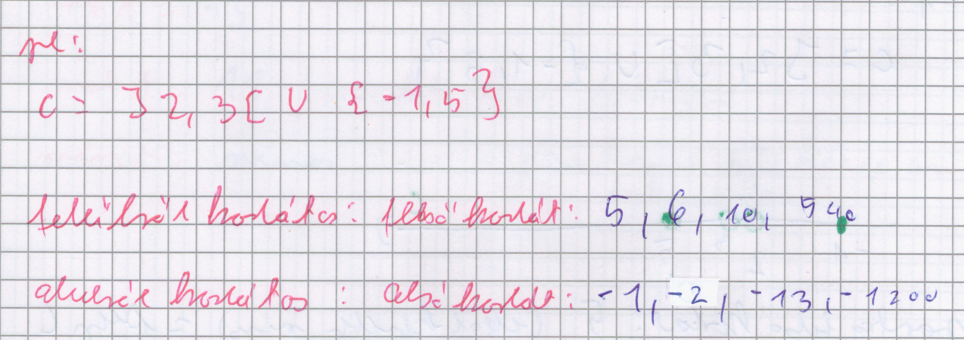 pl:
C = ]2,3[ ∪ {-1,5}
felülről korlátos: felső korlát: 5, 6, 10, 540
alulról korlátos: alsó korlát: -1, -2, -13, -1200